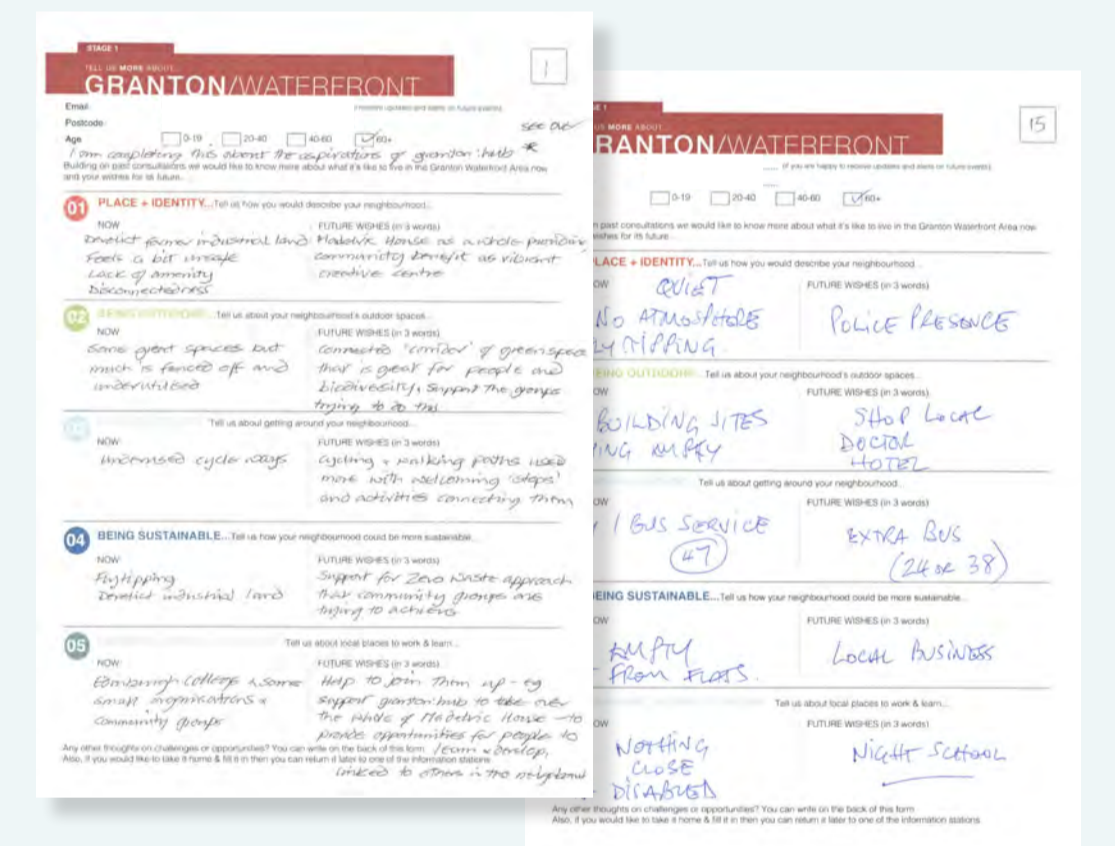 STAGE 1
TELL US MORE ABOUT...
GRANTON/WATERFRONT
1
Email
(receive updates and alerts on future events)
Postcode
see over
Age 0-19 20-40 40-60 60+
*
I am completing this about the aspirations of granton:hub
Building on past consultations we would like to know more about what it's like to live in the Granton Waterfront Area now
and your wishes for its future...
01 PLACE + IDENTITY...Tell us how you would describe your neighbourhood...
NOW
Derelict former industrial land
Feels a bit unsafe
Lack of amenity
Disconnectedness
FUTURE WISHES (in 3 words)
Madelvic House as a whole providing
community benefit as vibrant
creative centre
02 BEING OUTDOORS...Tell us about your neighbourhood's outdoor spaces...
NOW
Some great spaces but
much is fenced off and
underutilised
FUTURE WISHES (in 3 words)
Connected 'corridor' of greenspace
that is great for people and
biodiversity, support the groups
trying to do this
Tell us about getting around your neighbourhood...
NOW
Underused cycle ways
FUTURE WISHES (in 3 words)
Cycling + walking paths used
more with welcoming 'stops'
and activities connecting them
04 BEING SUSTAINABLE...Tell us how your neighbourhood could be more sustainable...
NOW
Flytipping
Derelict industrial land
FUTURE WISHES (in 3 words)
Support for Zero Waste approach
that community groups are
trying to achieve
05
Tell us about local places to work & learn...
NOW
Edinburgh College & some
small organisations &
community groups
FUTURE WISHES (in 3 words)
Help to join them up - eg
support granton:hub to take over
the whole of Madelvic House - to
provide opportunities for people to
learn & develop,
linked to others in the neighbourhood
Any other thoughts on challenges or opportunities? You can write on the back of this form.
Also, if you would like to take it home & fill it in then you can return it later to one of the information stations.
E 1
US MORE ABOUT...
RANTON/WATERFRONT
15
(if you are happy to receive updates and alerts on future events)
0-19 20-40 40-60 60+
n past consultations we would like to know more about what it's like to live in the Granton Waterfront Area now
wishes for its future...
LACE + IDENTITY...Tell us how you would describe your neighbourhood...
OW
QUIET
NO ATMOSPHERE
LY TIPPING
FUTURE WISHES (in 3 words)
POLICE PRESENCE
EING OUTDOORS...Tell us about your neighbourhood's outdoor spaces...
OW
BUILDING SITES
ING EMPTY
FUTURE WISHES (in 3 words)
SHOP LOCAL
DOCTOR
HOTEL
Tell us about getting around your neighbourhood...
OW
1 BUS SERVICE
47
FUTURE WISHES (in 3 words)
EXTRA BUS
(24 or 38)
EING SUSTAINABLE...Tell us how your neighbourhood could be more sustainable...
OW
EMPTY
FROM FLATS.
FUTURE WISHES (in 3 words)
LOCAL BUSINESS
Tell us about local places to work & learn...
OW
NOTHING
CLOSE
DISABLED
FUTURE WISHES (in 3 words)
NIGHT SCHOOL
Any other thoughts on challenges or opportunities? You can write on the back of this form.
Also, if you would like to take it home & fill it in then you can return it later to one of the information stations.